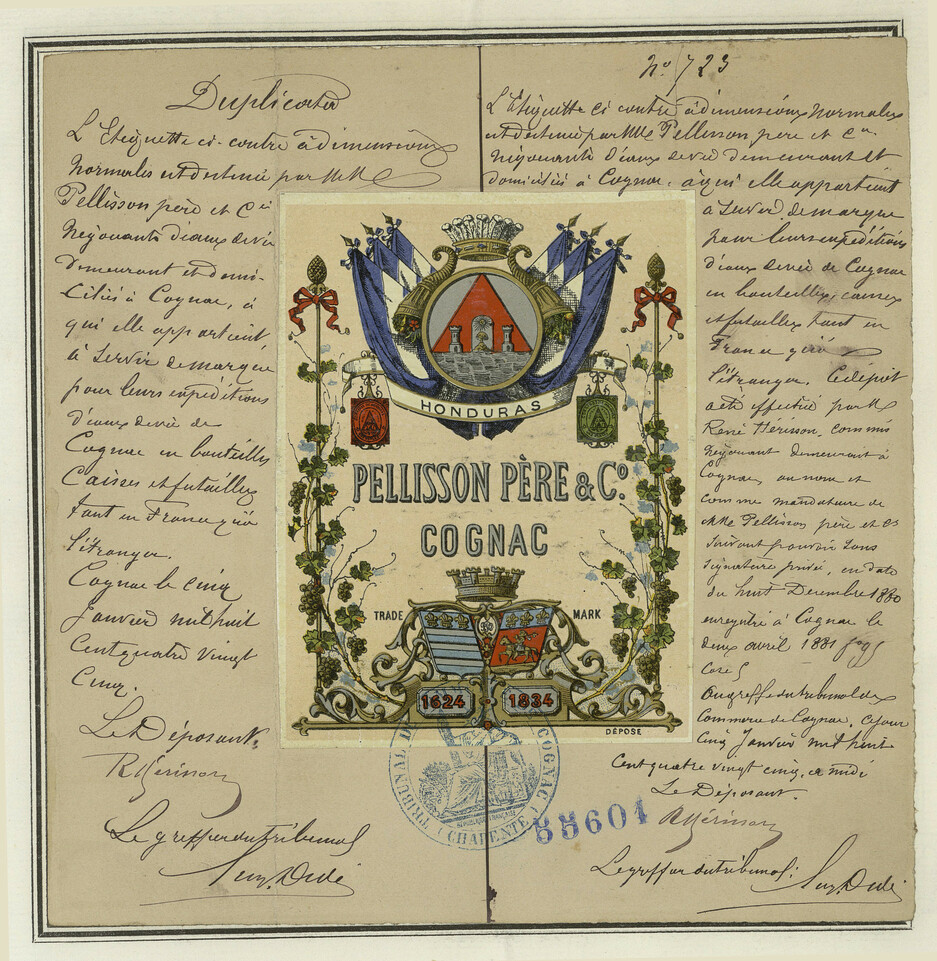 Duplicata
L'Etiquette ci-contre à dimensions
Normales est destinée par MM
Pellisson père et Cie
Négociants d'eaux de vie
demeurant et domi-
ciliés à Cognac, à
qui elle appartient
à servir de marque
pour leurs expéditions
d'eaux de vie de
Cognac en bouteilles
Caisses et futailles
tant en France qu'à
l'étranger.
Cognac le cinq
Janvier mil huit
Cent quatre vingt
Cinq.
Le Déposant,
R Hérisson
Le greffier du tribunal
No 723
L'Etiquette ci contre à dimensions Normales
est destinée par MM Pellisson père et Cie
Négociants d'eaux de vie demeurant et
domiciliés à Cognac, à qui elle appartient
à servir de marque
pour leurs expéditions
d'eaux de vie de Cognac
en bouteilles, caisses
et futailles tant en
France qu'à
l'étranger. Ce dépôt
a été effectué par M
René Hérisson, commis
Négociant demeurant à
Cognac, au nom et
comme mandataire de
MM Pellisson père et Cie
suivant pouvoir sous
signature privée, en date
du huit Décembre 1880
enregistré à Cognac le
deux avril 1881
Au greffe du tribunal de
Commerce de Cognac, ce jour
Cinq Janvier mil huit
Cent quatre vingt cinq, à midi
Le Déposant.
R Hérisson
Le greffier du tribunal:
HONDURAS
PELLISSON PÈRE & Co.
COGNAC
TRADE MARK
1624 - 1834
DÉPOSÉ
COGNAC (CHARENTE) TRIBUNAL
55601